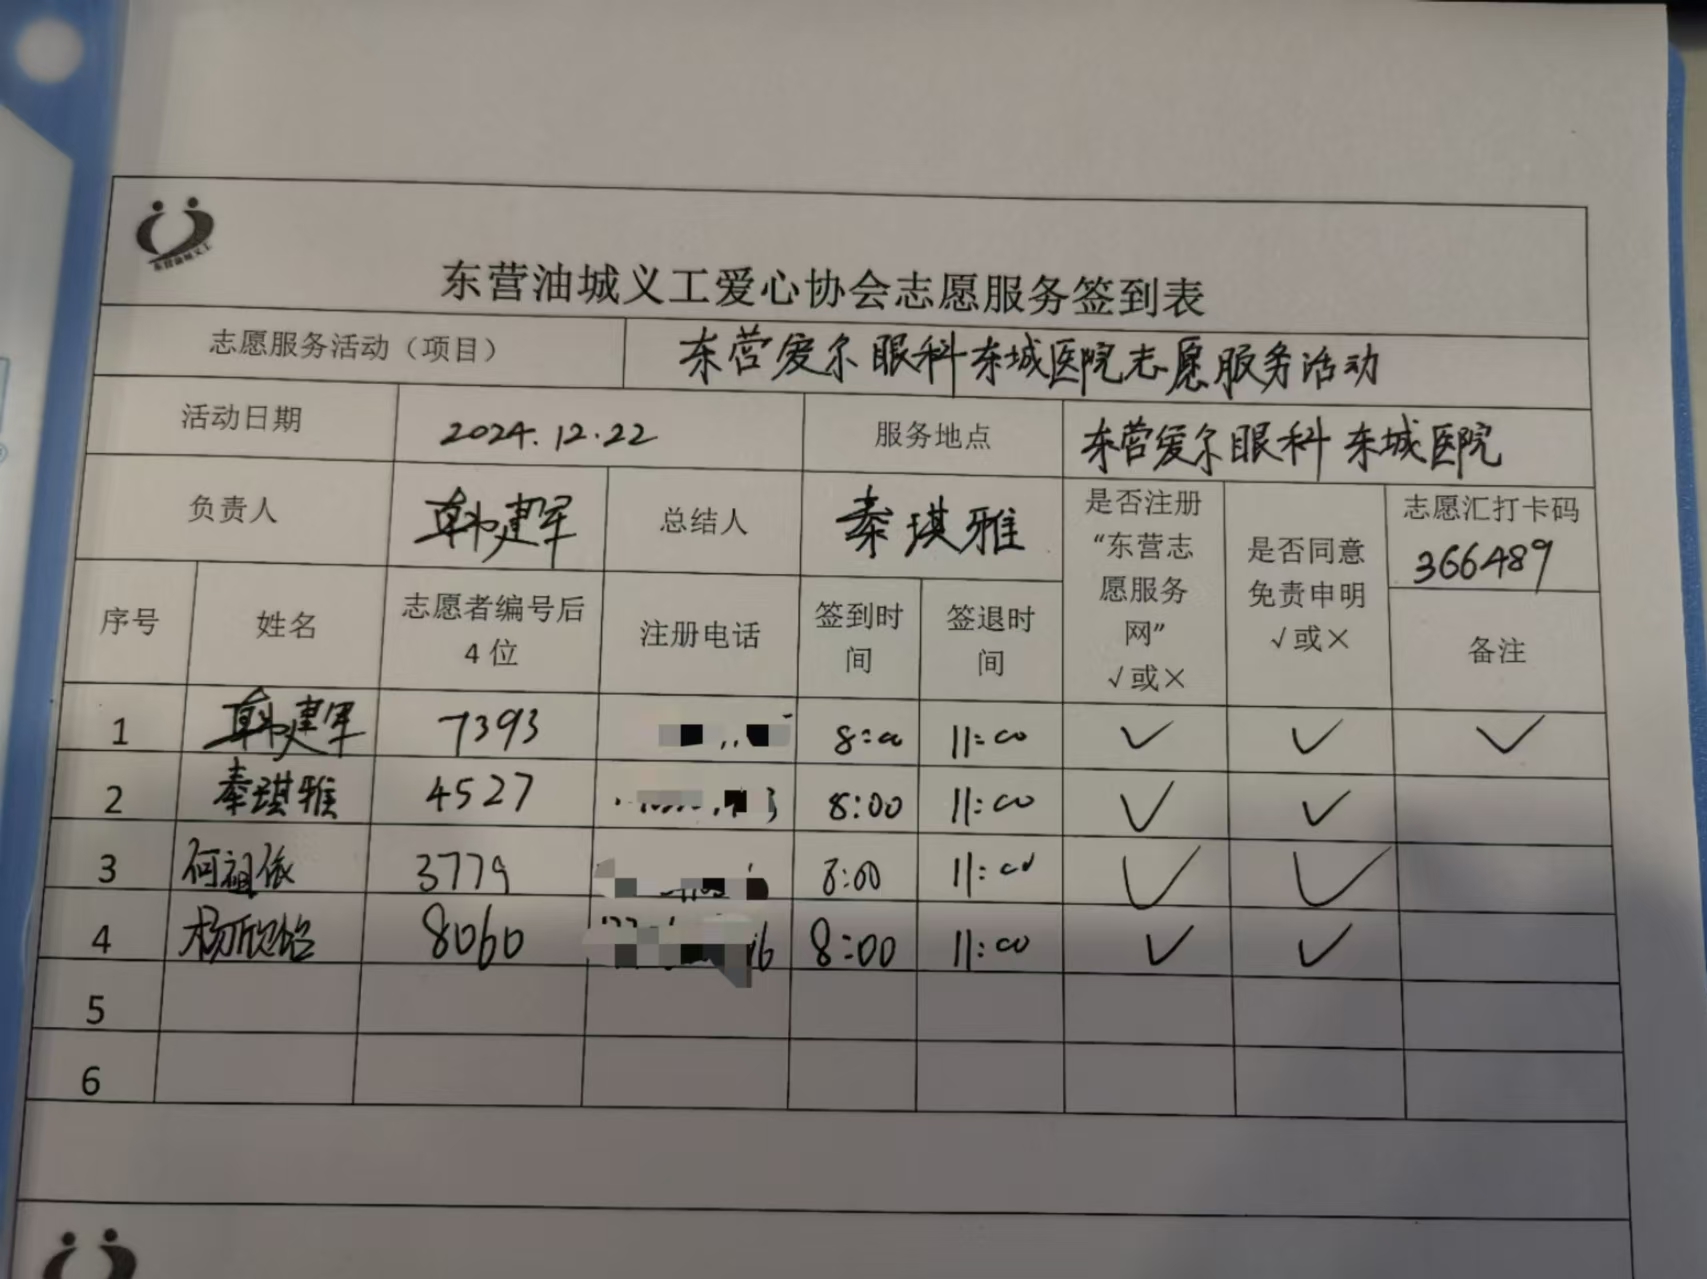 东营油城义工
东营油城义工爱心协会志愿服务签到表
志愿服务活动（项目） 东营爱尔眼科东城医院志愿服务活动
活动日期 2024.12.22 服务地点 东营爱尔眼科东城医院
负责人 韩建军 总结人 秦琪雅 是否注册“东营志愿服务网”√或× 是否同意免责申明√或× 志愿汇打卡码 366489
序号 姓名 志愿者编号后4位 注册电话 签到时间 签退时间 备注
1 韩建军 7393 8:00 11:00 ✓ ✓ ✓
2 秦琪雅 4527 8:00 11:00 ✓ ✓
3 何祖依 3779 8:00 11:00 ✓ ✓
4 杨欣怡 8060 8:00 11:00 ✓ ✓
5
6